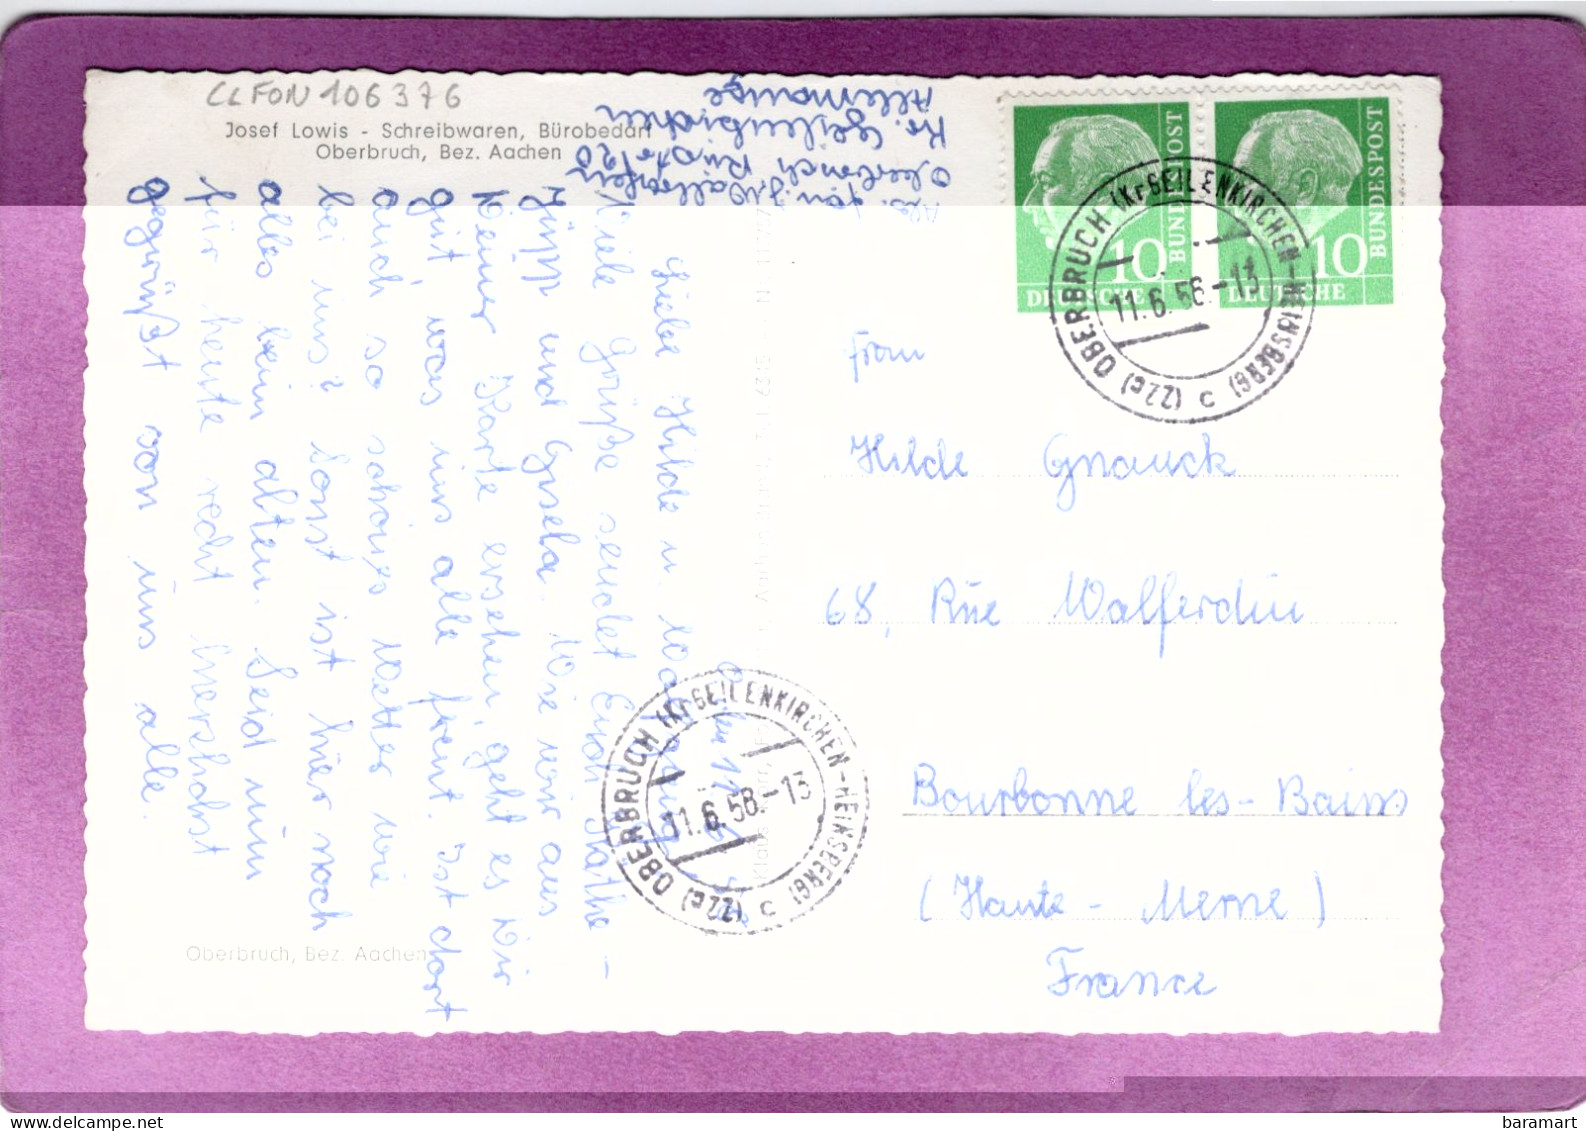 CLFON106376
Josef Lowis - Schreibwaren, Bürobedarf
Oberbruch, Bez. Aachen
Oberbruch
Kr. Geilenkirchen
Allemange
Liebe Hilde u.
Viele Grüße sendet Euch Käthe -
Jüpp und Gisela. Wie wir aus
Deiner Karte ersehen, geht es Dir
gut, was uns alle freut. Ist dort
auch so schönes Wetter wie
bei uns? Sonst ist hier noch
alles beim alten. Seid nun
für heute recht herzlichst
gegrüßt von uns alle.
Oberbruch, Bez. Aachen
DEUTSCHE BUNDESPOST 10
DEUTSCHE BUNDESPOST 10
(22c) OBERBRUCH (Kr GEILENKIRCHEN-HEINSBERG) c
11.6.58.-13
(22c) OBERBRUCH (Kr GEILENKIRCHEN-HEINSBERG) c
11.6.58.-13
Frau
Hilde Gnauck
68, Rüe Walferdin
Bourbonne les-Bains
(Haute - Merne)
France
delcampe.net
baramart